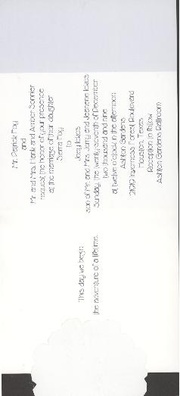 This day we begin
the adventure of a lifetime.
Mr. Patrick Fay
and
Mr. and Mrs. Hank and Amber Sonnier
request the honor of your presence
at the marriage of their daughter
Sierra Fay
to
Joey
son of Mr. and Mrs. Larry and Jeanene
Sunday, the twenty-seventh of December
two thousand and nine
at twelve o'clock in the afternoon
Ashton Gardens
21919 Inverness Forest Boulevard
Houston, Texas
Reception to follow
Ashton Gardens Ballroom